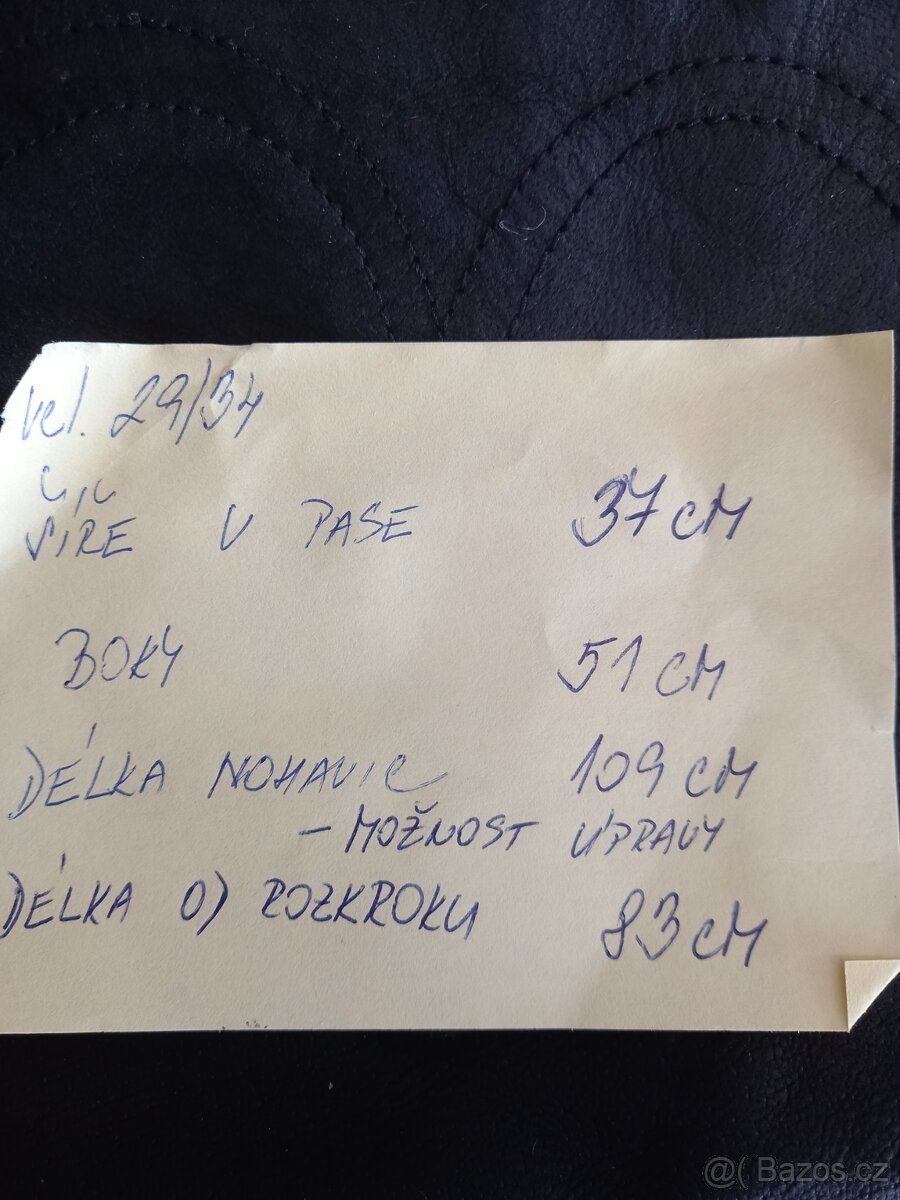 vel. 29/34
ŠÍŘE V PASE 37 CM
BOKY 51 CM
DÉLKA NOHAVIC 109 CM
- MOŽNOST ÚPRAVY
DÉLKA OD ROZKROKU 83 CM
@( Bazos.cz